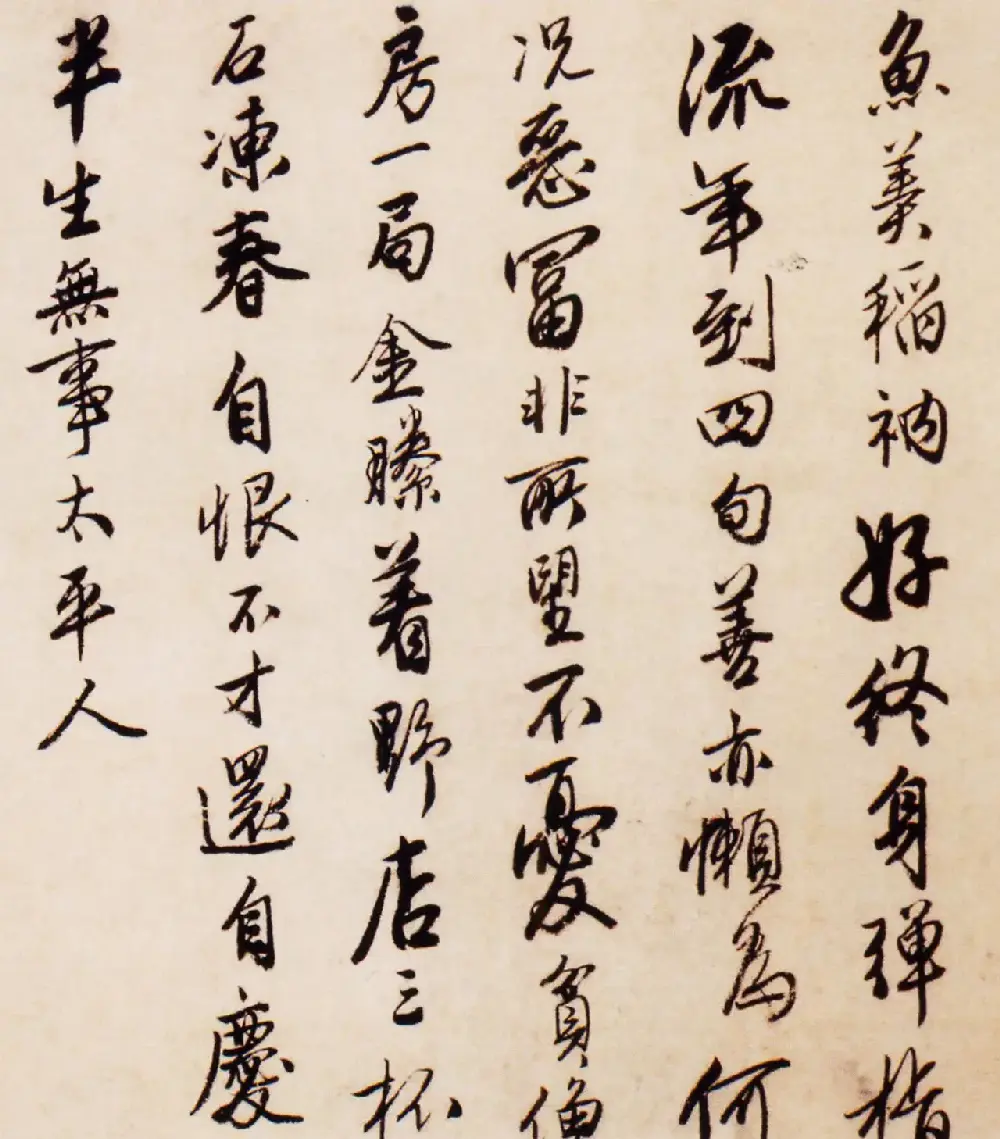 魚羹稻衲好終身彈指
流年到四旬善亦懶為何
況惡富非所望不憂貧僊
房一局金縢着野店三杯
石凍春自恨不才還自慶
半生無事太平人